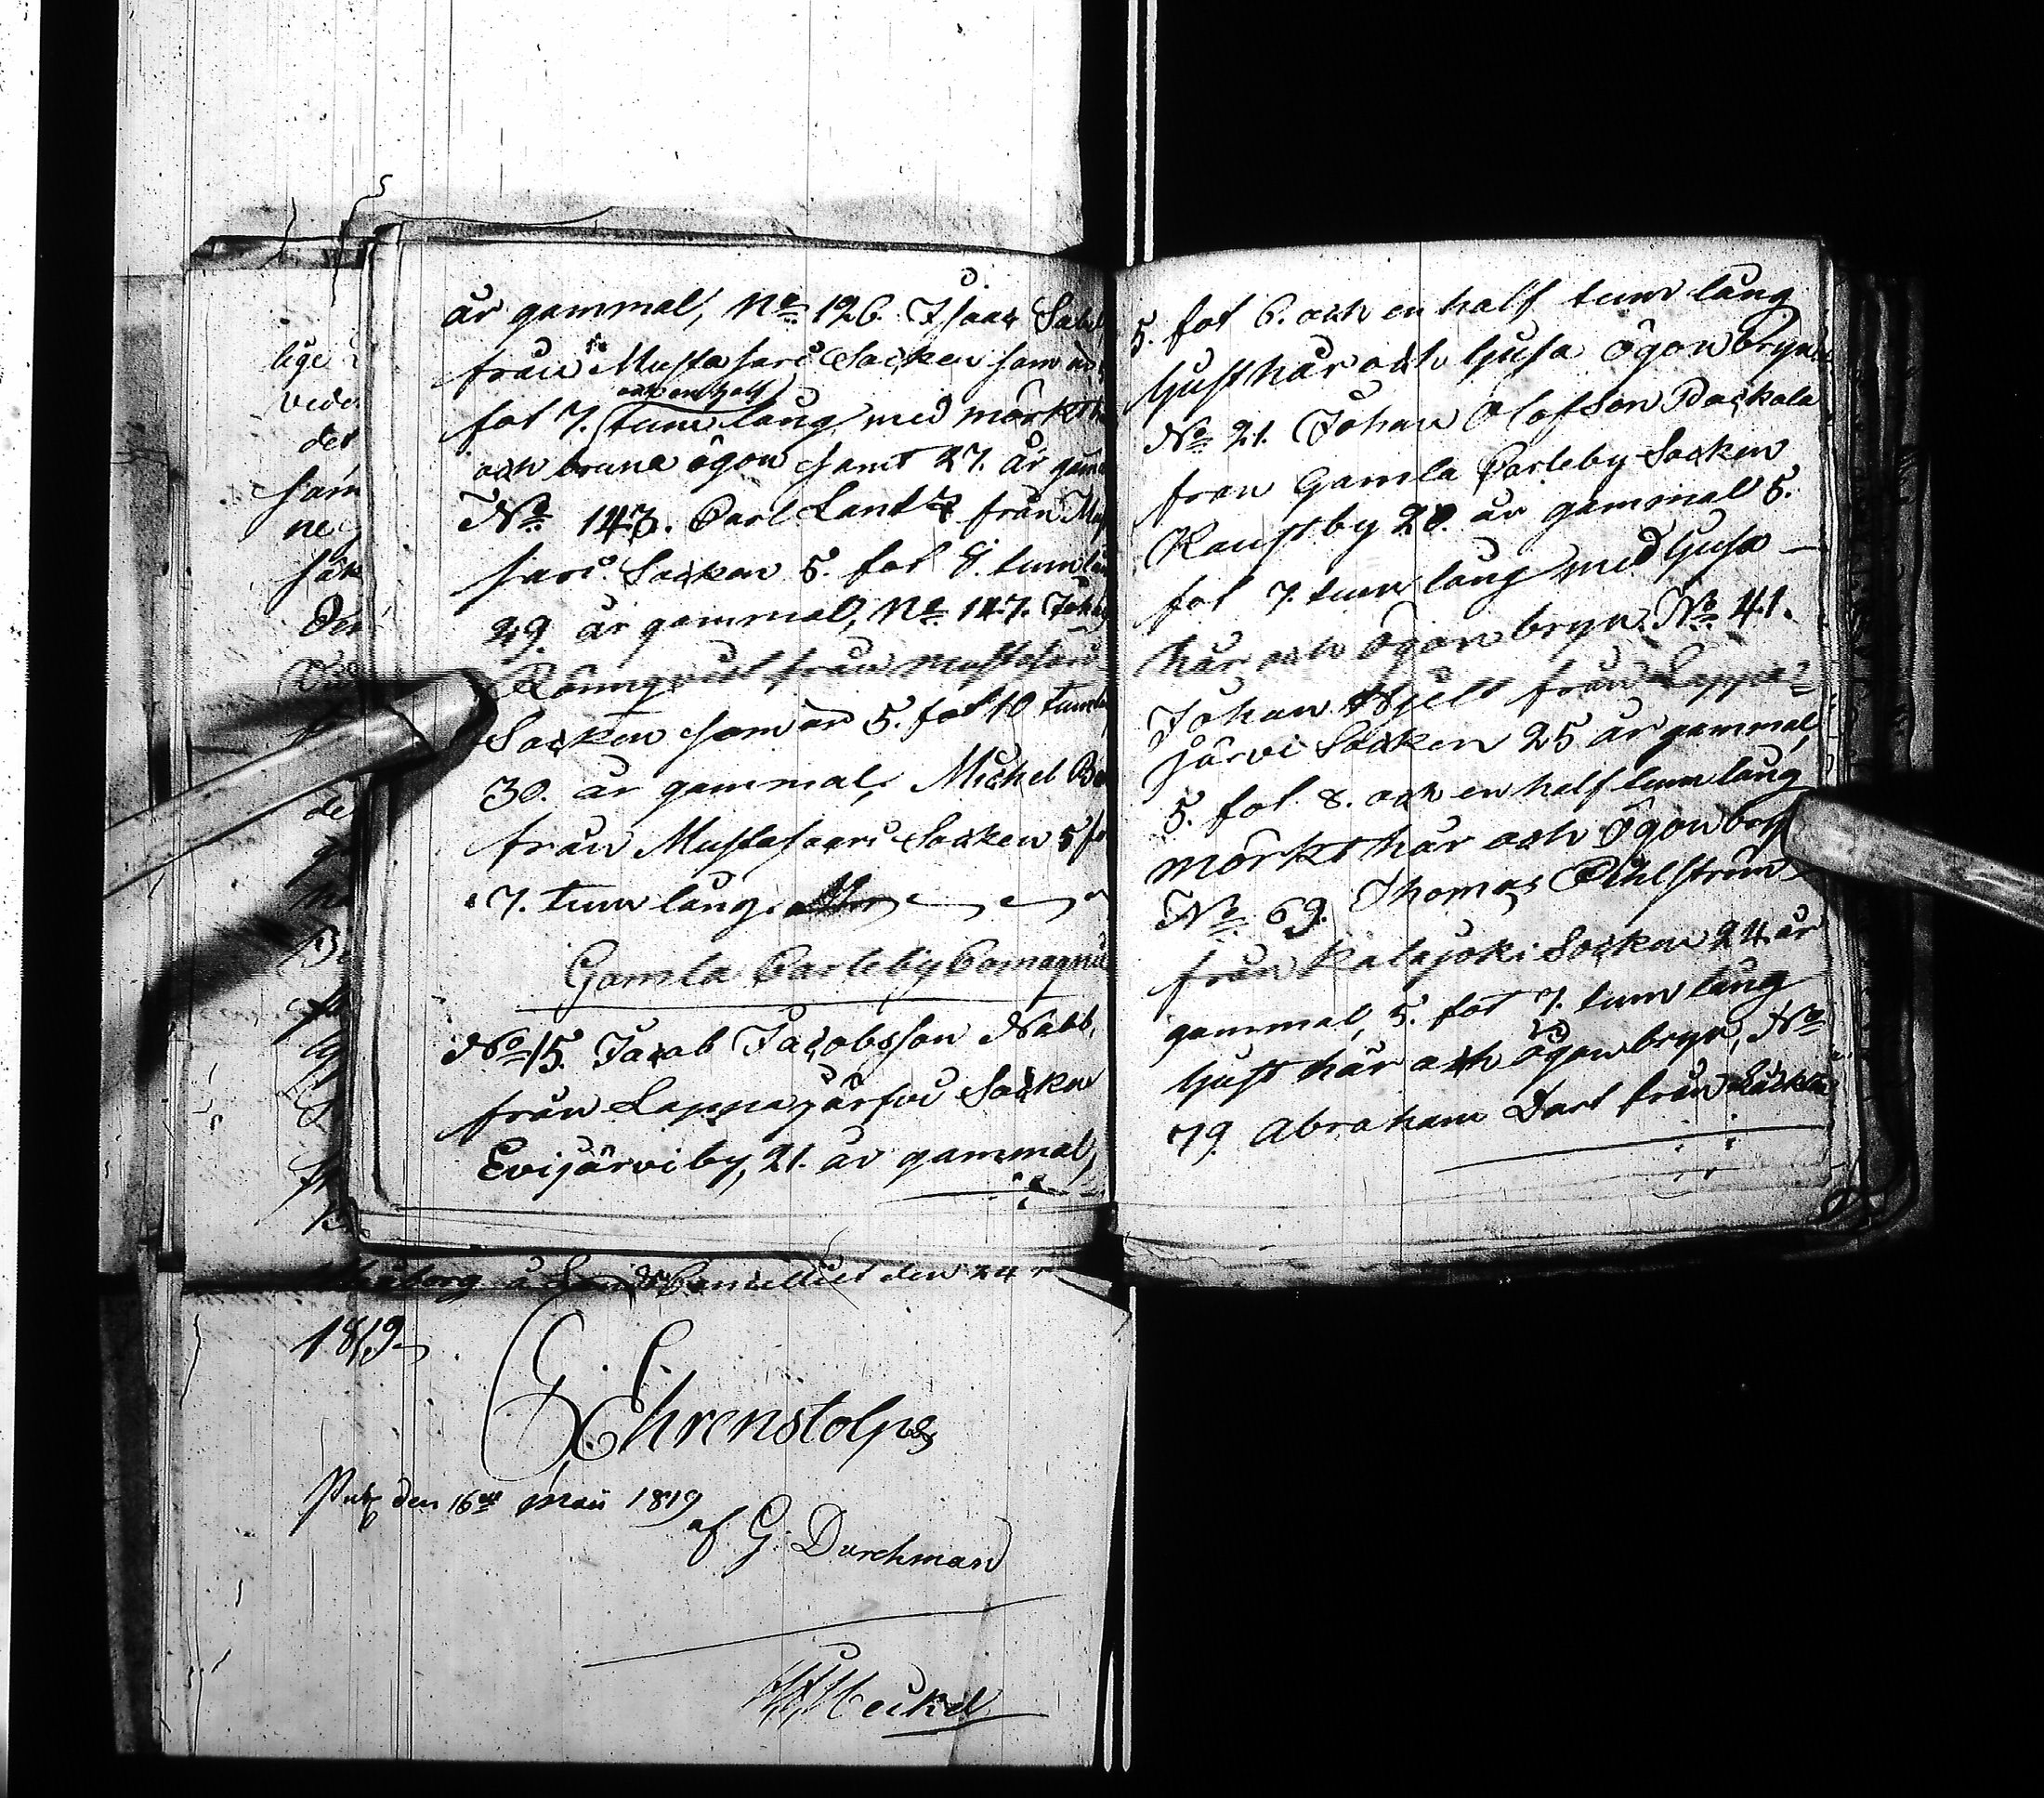 år gammal, No 126. Isaac
från Mustasari Socken som är
fot 7. och en half tum lång med mörkt
och bruna ögon samt 27. år
No 143. Carl Lantz från
sari Socken 5. fot 8. tum
29. år gammal, No 147.
Rönnqvist från Mustasari
Socken som är 5. fot 10 tum
30. år gammal, Michel
från Mustasaari Socken 5
7. tum lång.
Gamla Carleby Comagnie
No 15. Jacob Jacobsson Nabb,
från Lappajärfvi Socken
Evijärvi by, 21. år gammal,
5. fot 6. och en half tum lång
ljust hår och ljusa ögonbryn
No 21. Johan Olofsson Backala
från Gamla Carleby Socken
Kaustby 20. år gammal 5.
fot 7. tum lång med ljusa
hår och ögonbryn. No 41.
Johan Hjelt från Lappa=
järvi Socken 25 år gammal,
5. fot 8. och en half tum lång
mörkt hår och ögonbryn
No 69. Thomas Pihlström
från Kalajoki Socken 24 år
gammal, 5. fot 7. tum lång
ljust hår och ögonbryn, No
79. Abraham Dart från
lige
vide
det
sam
ne
den
de
å Lands Cancelliet den 24
1819
G. Ehrenstolpe
Publ den 16de Maii 1819
af G: Durchman